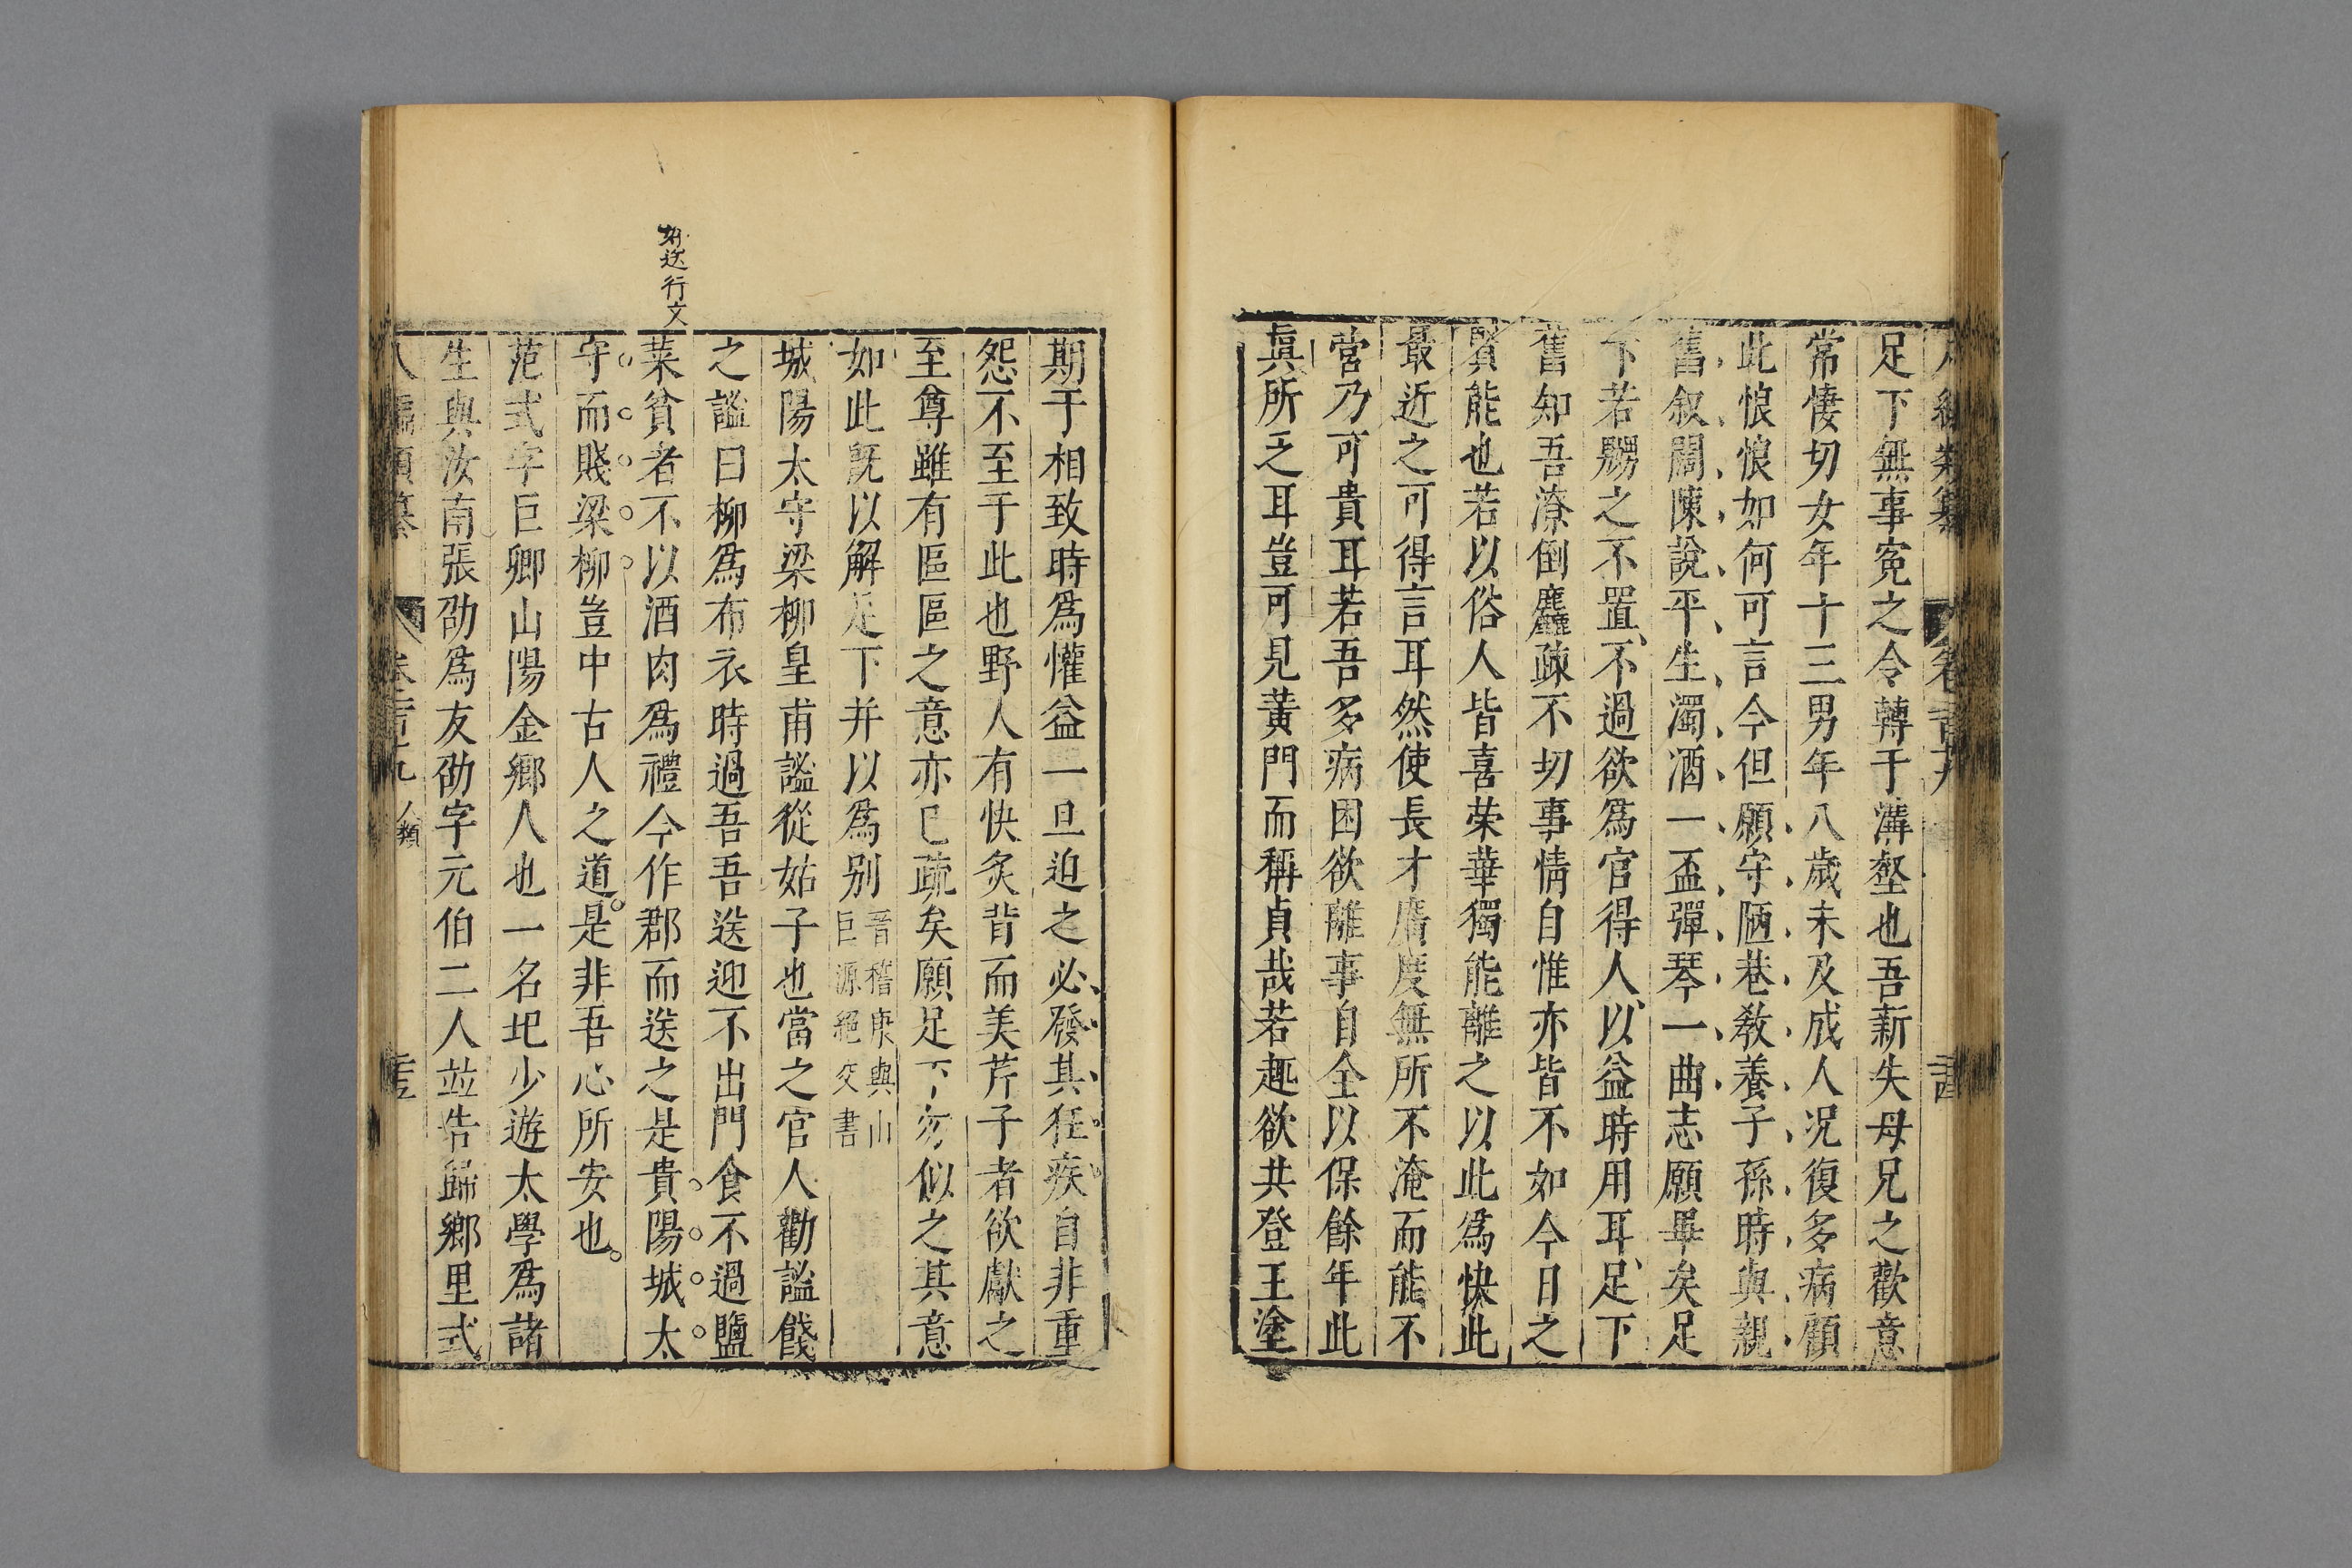 足下無事寃之令轉于溝壑也吾新失母兄之歡意
常悽切女年十三男年八歲未及成人况復多病顧
此悢悢如何可言今但願守陋巷教養子孫時與親
舊叙闊陳說平生濁酒一盃彈琴一曲志願畢矣足
下若嬲之不置不過欲爲官得人以益時用耳足下
舊知吾潦倒麤疎不切事情自惟亦皆不如今日之
賢能也若以俗人皆喜荣華獨能離之以此爲快此
最近之可得言耳然使長才廣度無所不淹而能不
營乃可貴耳若吾多病困欲離事自全以保餘年此
眞所乏耳豈可見黃門而稱貞哉若趣欲共登王塗
期于相致時爲懽益一旦迫之必發其狂疾自非重
怨不至于此也野人有快炙背而美芹子者欲獻之
至尊雖有區區之意亦已疏矣願足下勿似之其意
如此旣以解足下并以爲別晉嵇康與山巨源絕交書
城陽太守梁柳皇甫謐從姑子也當之官人勸謐餞
之謐曰柳爲布衣時過吾吾送迎不出門食不過鹽
菜貧者不以酒肉爲禮今作郡而送之是貴陽城太
守而賤梁柳豈中古人之道是非吾心所安也
范式字巨卿山陽金鄉人也一名汜少遊太學爲諸
生與汝南張劭爲友劭字元伯二人並告歸鄉里式
送行文